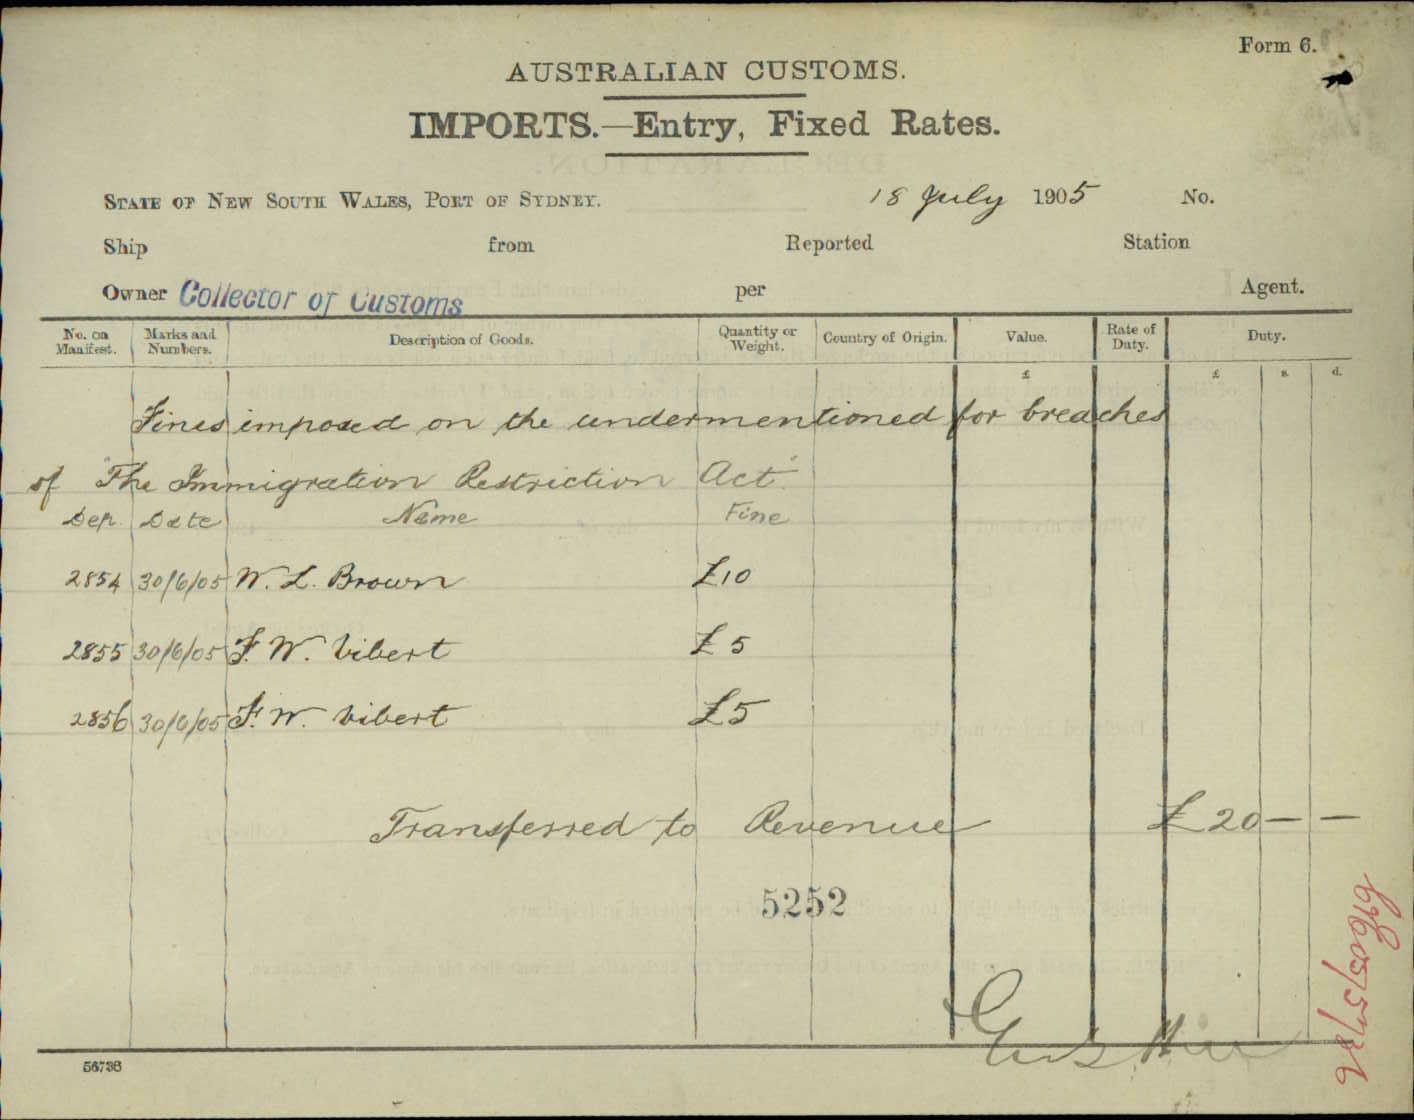 Form 6.
AUSTRALIAN CUSTOMS.
IMPORTS.—Entry, Fixed Rates.
STATE OF NEW SOUTH WALES, PORT OF SYDNEY. 18 July 1905 No.
Ship from Reported Station
Owner Collector of Customs per Agent.
No. on Manifest. Marks and Numbers. Description of Goods. Quantity or Weight. Country of Origin. Value. Rate of Duty. Duty.
£ £ s. d.
Fines imposed on the undermentioned for breaches
of "The Immigration Restriction Act"
Dep. Date Name Fine
2854 30/6/05 W. L. Brown £10
2855 30/6/05 F. W. Vibert £5
2856 30/6/05 F. W. Vibert £5
Transferred to Revenue £20 — —
5252
56736